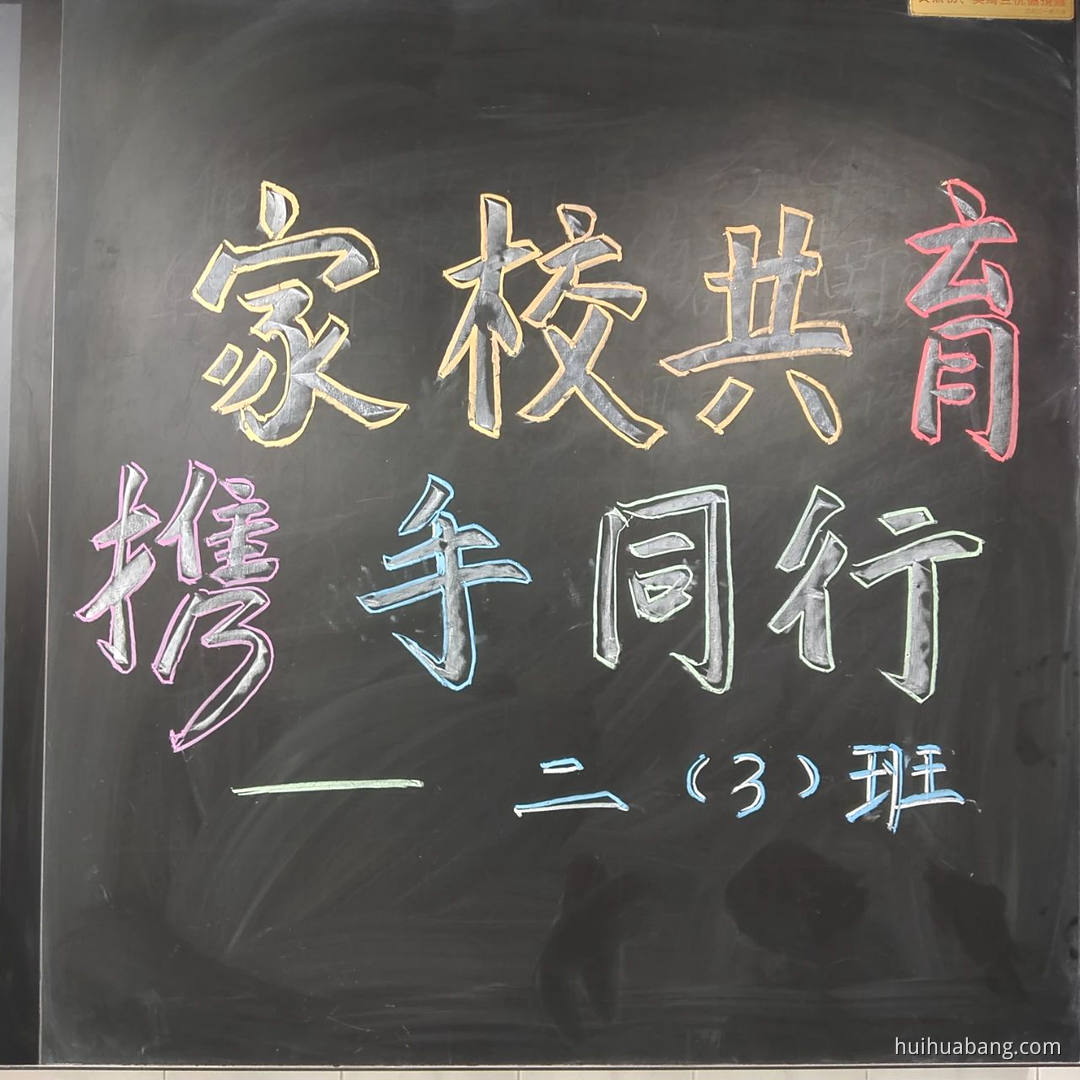 家校共育
携手同行
—— 二（3）班
huihuabang.com